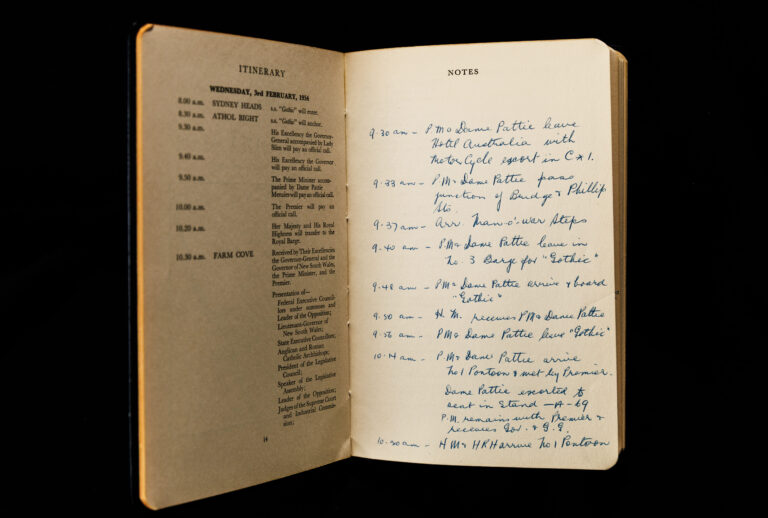 ITINERARY
WEDNESDAY, 3rd FEBRUARY, 1954
8.00 a.m. SYDNEY HEADS s.s. "Gothic" will enter.
8.30 a.m. ATHOL BIGHT s.s. "Gothic" will anchor.
9.30 a.m. His Excellency the Governor-
General accompanied by Lady
Slim will pay an official call.
9.40 a.m. His Excellency the Governor
will pay an official call.
9.50 a.m. The Prime Minister accom-
panied by Dame Pattie
Menzies will pay an official call.
10.00 a.m. The Premier will pay an
official call.
10.20 a.m. Her Majesty and His Royal
Highness will transfer to the
Royal Barge.
10.30 a.m. FARM COVE Received by Their Excellencies
the Governor-General and the
Governor of New South Wales,
the Prime Minister, and the
Premier.
Presentation of—
Federal Executive Council-
lors under summons and
Leader of the Opposition;
Lieutenant-Governor of
New South Wales;
State Executive Councillors;
Anglican and Roman
Catholic Archbishops;
President of the Legislative
Council;
Speaker of the Legislative
Assembly;
Leader of the Opposition;
Judges of the Supreme Court
and Industrial Commis-
sion;
14
NOTES
9.30 am – P.M & Dame Pattie leave
Hotel Australia with
Motor Cycle escort in C*1.
9.33 am – P.M & Dame Pattie pass
junction of Bridge & Phillip
Sts.
9.37 am – Arr. Man-o'-war Steps
9.40 am – P.M & Dame Pattie leave in
No. 3 Barge for "Gothic"
9.48 am – P.M & Dame Pattie arrive & board
"Gothic"
9.50 am – H.M. receives P.M & Dame Pattie
9.56 am – P.M & Dame Pattie leave "Gothic"
10.14 am – P.M & Dame Pattie arrive
No 1 Pontoon & met by Premier.
Dame Pattie escorted to
seat in Stand – A-69
P.M. remains with Premier &
receives Gov. & G.G.
10.30 am – H M & H R H arrive No 1 Pontoon